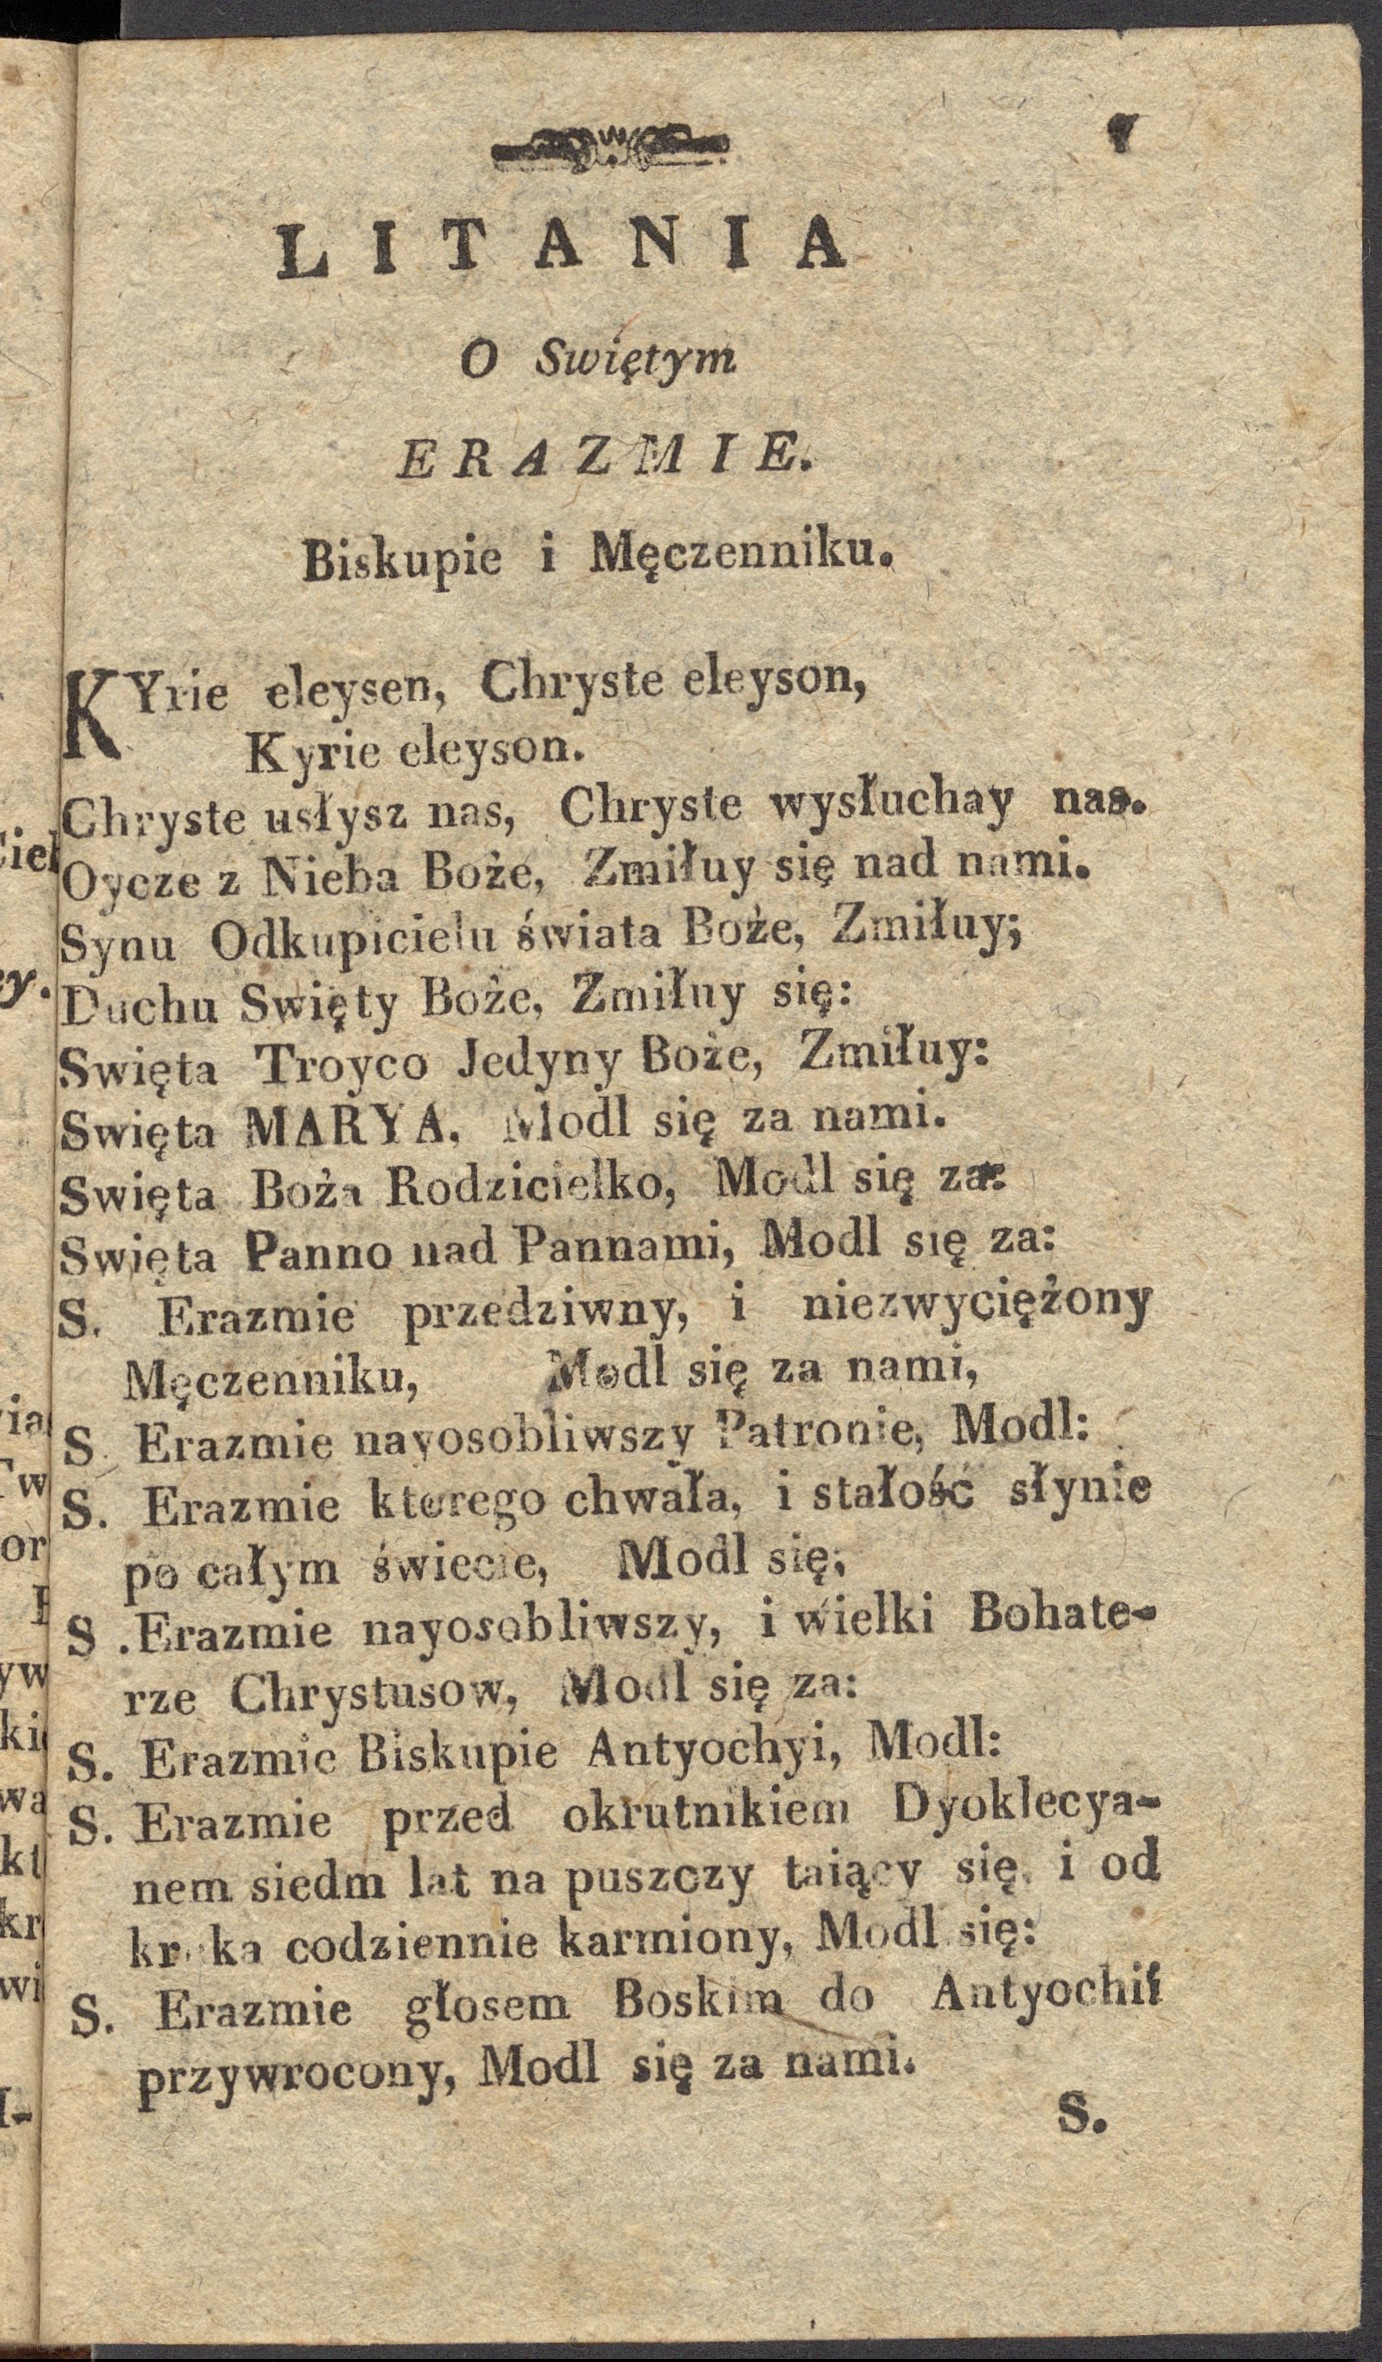 LITANIA
O Swiętym
ERAZMIE.
Biskupie i Męczenniku.
KYrie eleysen, Chryste eleyson,
Kyrie eleyson.
Chryste usłysz nas, Chryste wysłuchay nas.
Oycze z Nieba Boże, Zmiłuy się nad nami.
Synu Odkupicielu świata Boże, Zmiłuy;
Duchu Swięty Boże, Zmiłuy się:
Swięta Troyco Jedyny Boże, Zmiłuy:
Swięta MARYA, Modl się za nami.
Swięta Boża Rodzicielko, Modl się za:
Swięta Panno nad Pannami, Modl się za:
S. Erazmie przedziwny, i niezwyciężony
Męczenniku, Modl się za nami,
S. Erazmie nayosobliwszy Patronie, Modl:
S. Erazmie ktorego chwała, i stałość słynie
po całym świecie, Modl się;
S .Erazmie nayosobliwszy, i wielki Bohate-
rze Chrystusow, Modl się za:
S. Erazmie Biskupie Antyochyi, Modl:
S. Erazmie przed okrutnikiem Dyoklecya-
nem siedm lat na puszczy taiący się, i od
kruka codziennie karmiony, Modl się:
S. Erazmie głosem Boskim do Antyochii
przywrocony, Modl się za nami.
S.